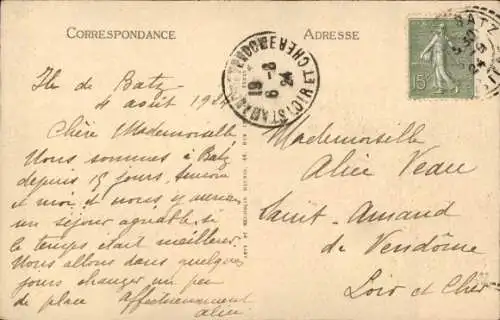 CORRESPONDANCE
ADRESSE
Ile de Batz
4 août 192
Chère Mademoiselle
Nous sommes à Batz
depuis 15 jours,
et moi et nous y aurions
un séjour agréable si
le temps était meilleur.
Nous allons dans quelques
jours changer un peu
de place Affectueusement
Alice
Mademoiselle
Alice Veau
Saint-Amand
de Vendôme
Loir et Cher
19
6-8
24
LOIR ET CHER
15c
BATZ